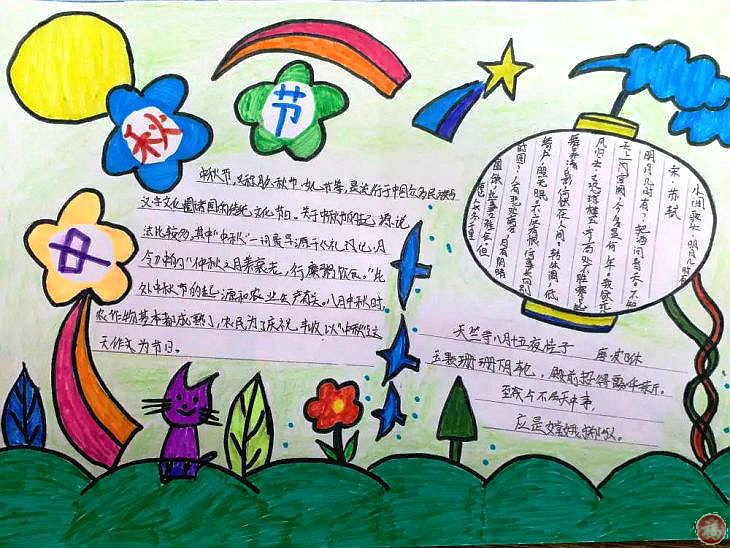 中
秋
节
中秋节,又称
汉字文化圈诸国的传统文化节日。关于中秋节的起源,说
法比较多,其中"中秋"一词最早源于《礼记》,月
令中的"仲秋之月养衰老,行糜粥饮食。"此
外中秋节的起源和农业生产有关。八月中秋时,
农作物基本都成熟了,农民为了庆祝丰收,以"中秋"这
天作为节日。
水调歌头·明月几时有
宋 苏轼
明月几时有?把酒问青天。不知
天上宫阙,今夕是何年。我欲乘
风归去,又恐琼楼玉宇,高处不胜寒。
起舞弄清影,何似在人间。转朱阁,低
绮户,照无眠。不应有恨,何事长向别
时圆?人有悲欢离合,月有阴晴
圆缺,此事古难全。但
愿人长久,千里
天竺寺八月十五夜桂子
唐 皮日休
玉颗珊珊下月轮,殿前拾得露华新。
至今不 天中事,
应是嫦娥掷与人。
福